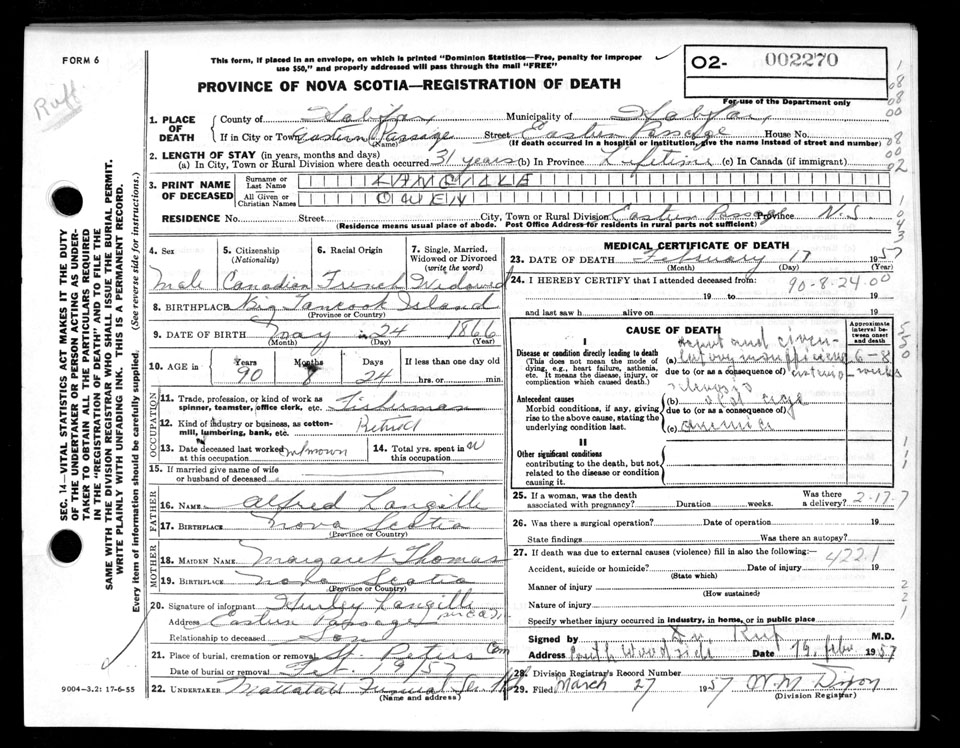 FORM 6
This form, if placed in an envelope, on which is printed "Dominion Statistics—Free, penalty for improper
use $50," and properly addressed will pass through the mail "FREE"
O2- 002270
For use of the Department only
PROVINCE OF NOVA SCOTIA—REGISTRATION OF DEATH
Ruff
1. PLACE OF DEATH
County of Halifax, Municipality of Halifax,
If in City or Town Eastern Passage (Name) Street Eastern Passage House No.
(If death occurred in a hospital or institution, give the name instead of street and number)
2. LENGTH OF STAY (in years, months and days)
(a) In City, Town or Rural Division where death occurred 31 years (b) In Province Lifetime (c) In Canada (if immigrant)
3. PRINT NAME OF DECEASED
Surname or Last Name LANGILLE
All Given or Christian Names OWEN
RESIDENCE No. Street City, Town or Rural Division Eastern Passage Province N.S.
(Residence means usual place of abode. Post Office Address for residents in rural parts not sufficient)
4. Sex Male
5. Citizenship (Nationality) Canadian
6. Racial Origin French
7. Single, Married, Widowed or Divorced (write the word) Widowed
8. BIRTHPLACE Big Tancook Island
(Province or Country)
9. DATE OF BIRTH May 24 1866
(Month) (Day) (Year)
10. AGE in Years 90 Months 8 Days 24 If less than one day old
hrs. or min.
OCCUPATION
11. Trade, profession, or kind of work as
spinner, teamster, office clerk, etc. Fisherman
12. Kind of industry or business, as cotton-
mill, lumbering, bank, etc. Retired
13. Date deceased last worked at this occupation unknown
14. Total yrs. spent in this occupation
15. If married give name of wife
or husband of deceased
FATHER
16. NAME Alfred Langille
17. BIRTHPLACE Nova Scotia
(Province or Country)
MOTHER
18. MAIDEN NAME Margaret Thomas
19. BIRTHPLACE Nova Scotia
(Province or Country)
20. Signature of informant Hurley Langille
Address Eastern Passage
Relationship to deceased Son
21. Place of burial, cremation or removal St. Peters Cem
Date of burial or removal Feb. 19/57
22. UNDERTAKER Mattatall Funeral
(Name and address)
MEDICAL CERTIFICATE OF DEATH
23. DATE OF DEATH February 17 1957
(Month) (Day) (Year)
24. I HEREBY CERTIFY that I attended deceased from:
90-8-24.00
19 to 19
and last saw h alive on 19
CAUSE OF DEATH
Approximate interval between onset and death
I
Disease or condition directly leading to death
(This does not mean the mode of
dying, e.g., heart failure, asthenia,
etc. It means the disease, injury, or
complication which caused death.)
(a) heart and circu-
latory insufficiency 6-8
due to (or as a consequence of) arterio- weeks
sclerosis
Antecedent causes
Morbid conditions, if any, giving
rise to the above cause, stating the
underlying condition last.
(b) old age
due to (or as a consequence of)
(c) anemia
II
Other significant conditions
contributing to the death, but not
related to the disease or condition
causing it.
25. If a woman, was the death
associated with pregnancy? Duration weeks. Was there a delivery?
2-17-7
26. Was there a surgical operation? Date of operation 19
State findings Was there an autopsy?
27. If death was due to external causes (violence) fill in also the following:—
422.1
Accident, suicide or homicide? Date of injury 19
(State which)
Manner of injury
(How sustained)
Nature of injury
Specify whether injury occurred in industry, in home, or in public place
Signed by Dr. Ruf M.D.
Address South Woodside Date 19. febr. 1957
28. Division Registrar's Record Number
29. Filed March 27 1957 W. M. Dixon
(Division Registrar)
SEC. 14—VITAL STATISTICS ACT MAKES IT THE DUTY
OF THE UNDERTAKER OR PERSON ACTING AS UNDER-
TAKER TO OBTAIN ALL THE PARTICULARS REQUIRED
IN THE "REGISTRATION OF DEATH" AND TO FILE THE
SAME WITH THE DIVISION REGISTRAR WHO SHALL ISSUE THE BURIAL PERMIT.
WRITE PLAINLY WITH UNFADING INK. THIS IS A PERMANENT RECORD.
Every item of information should be carefully supplied. (See reverse side for instructions.)
9004—3.2: 17-6-55